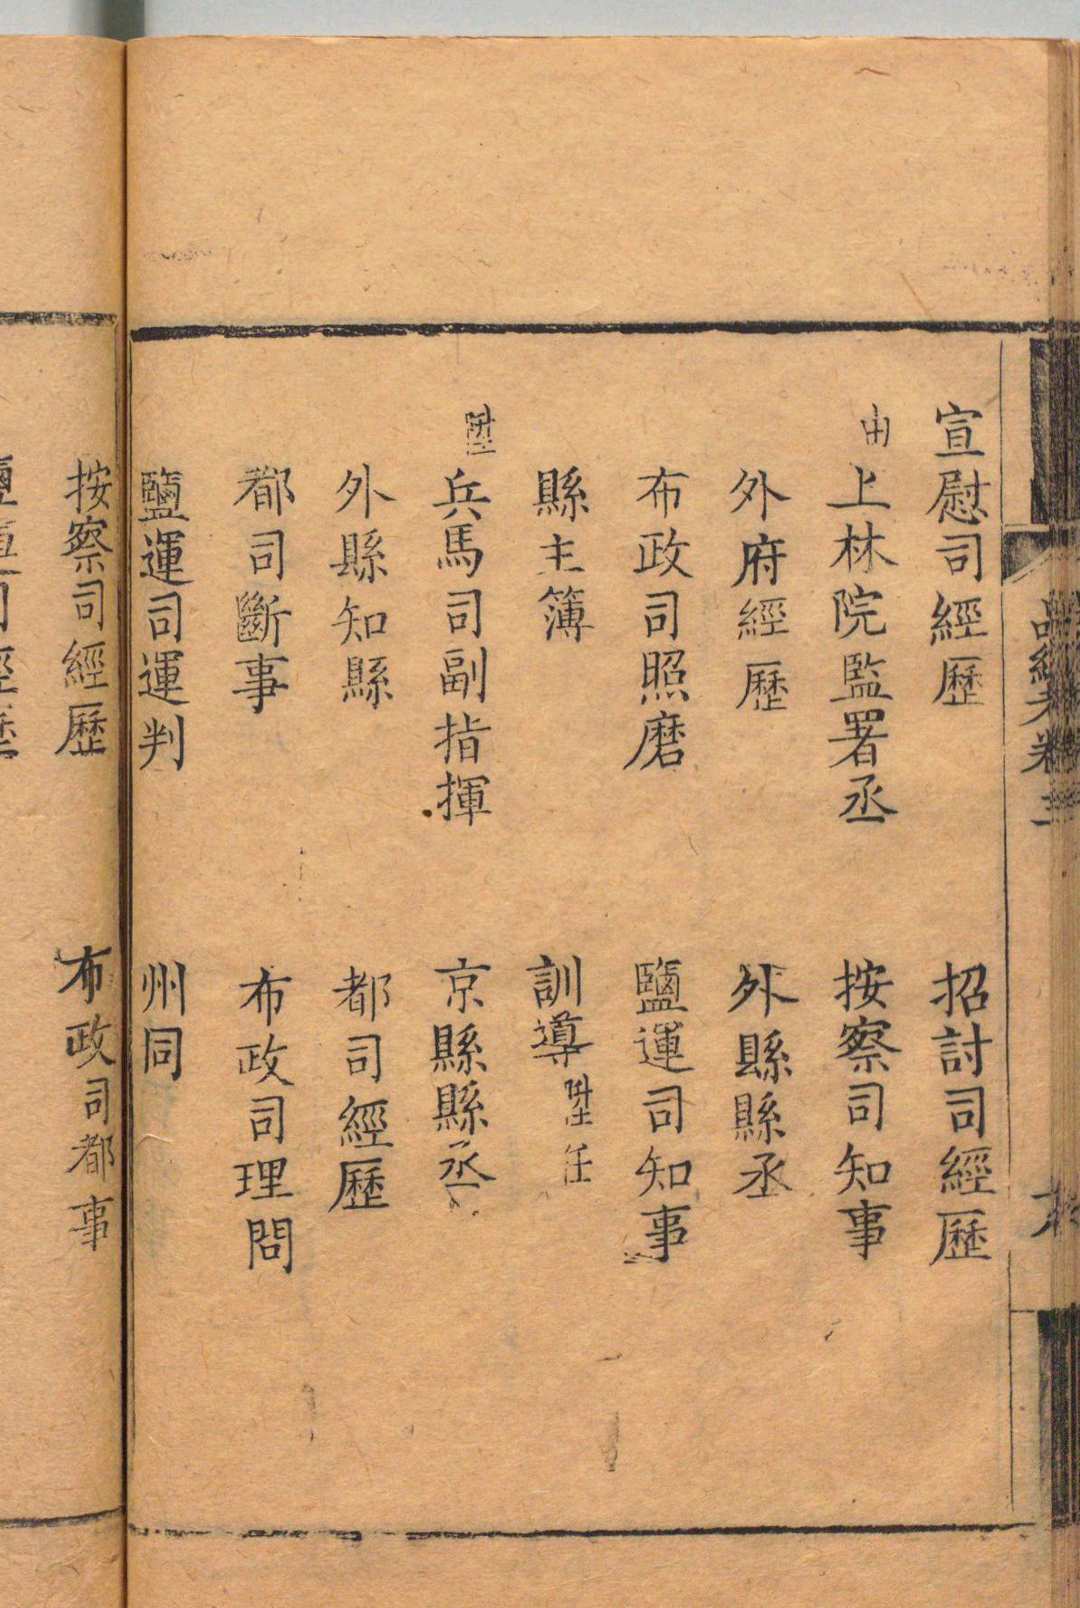 宣慰司經歷　招討司經歷
由上林院監署丞　按察司知事
外府經歷　外縣縣丞
布政司照磨　鹽運司知事
縣主簿　訓導陞任
陞兵馬司副指揮　京縣縣丞
外縣知縣　都司經歷
都司斷事　布政司理問
鹽運司運判　州同
按察司經歷　布政司都事